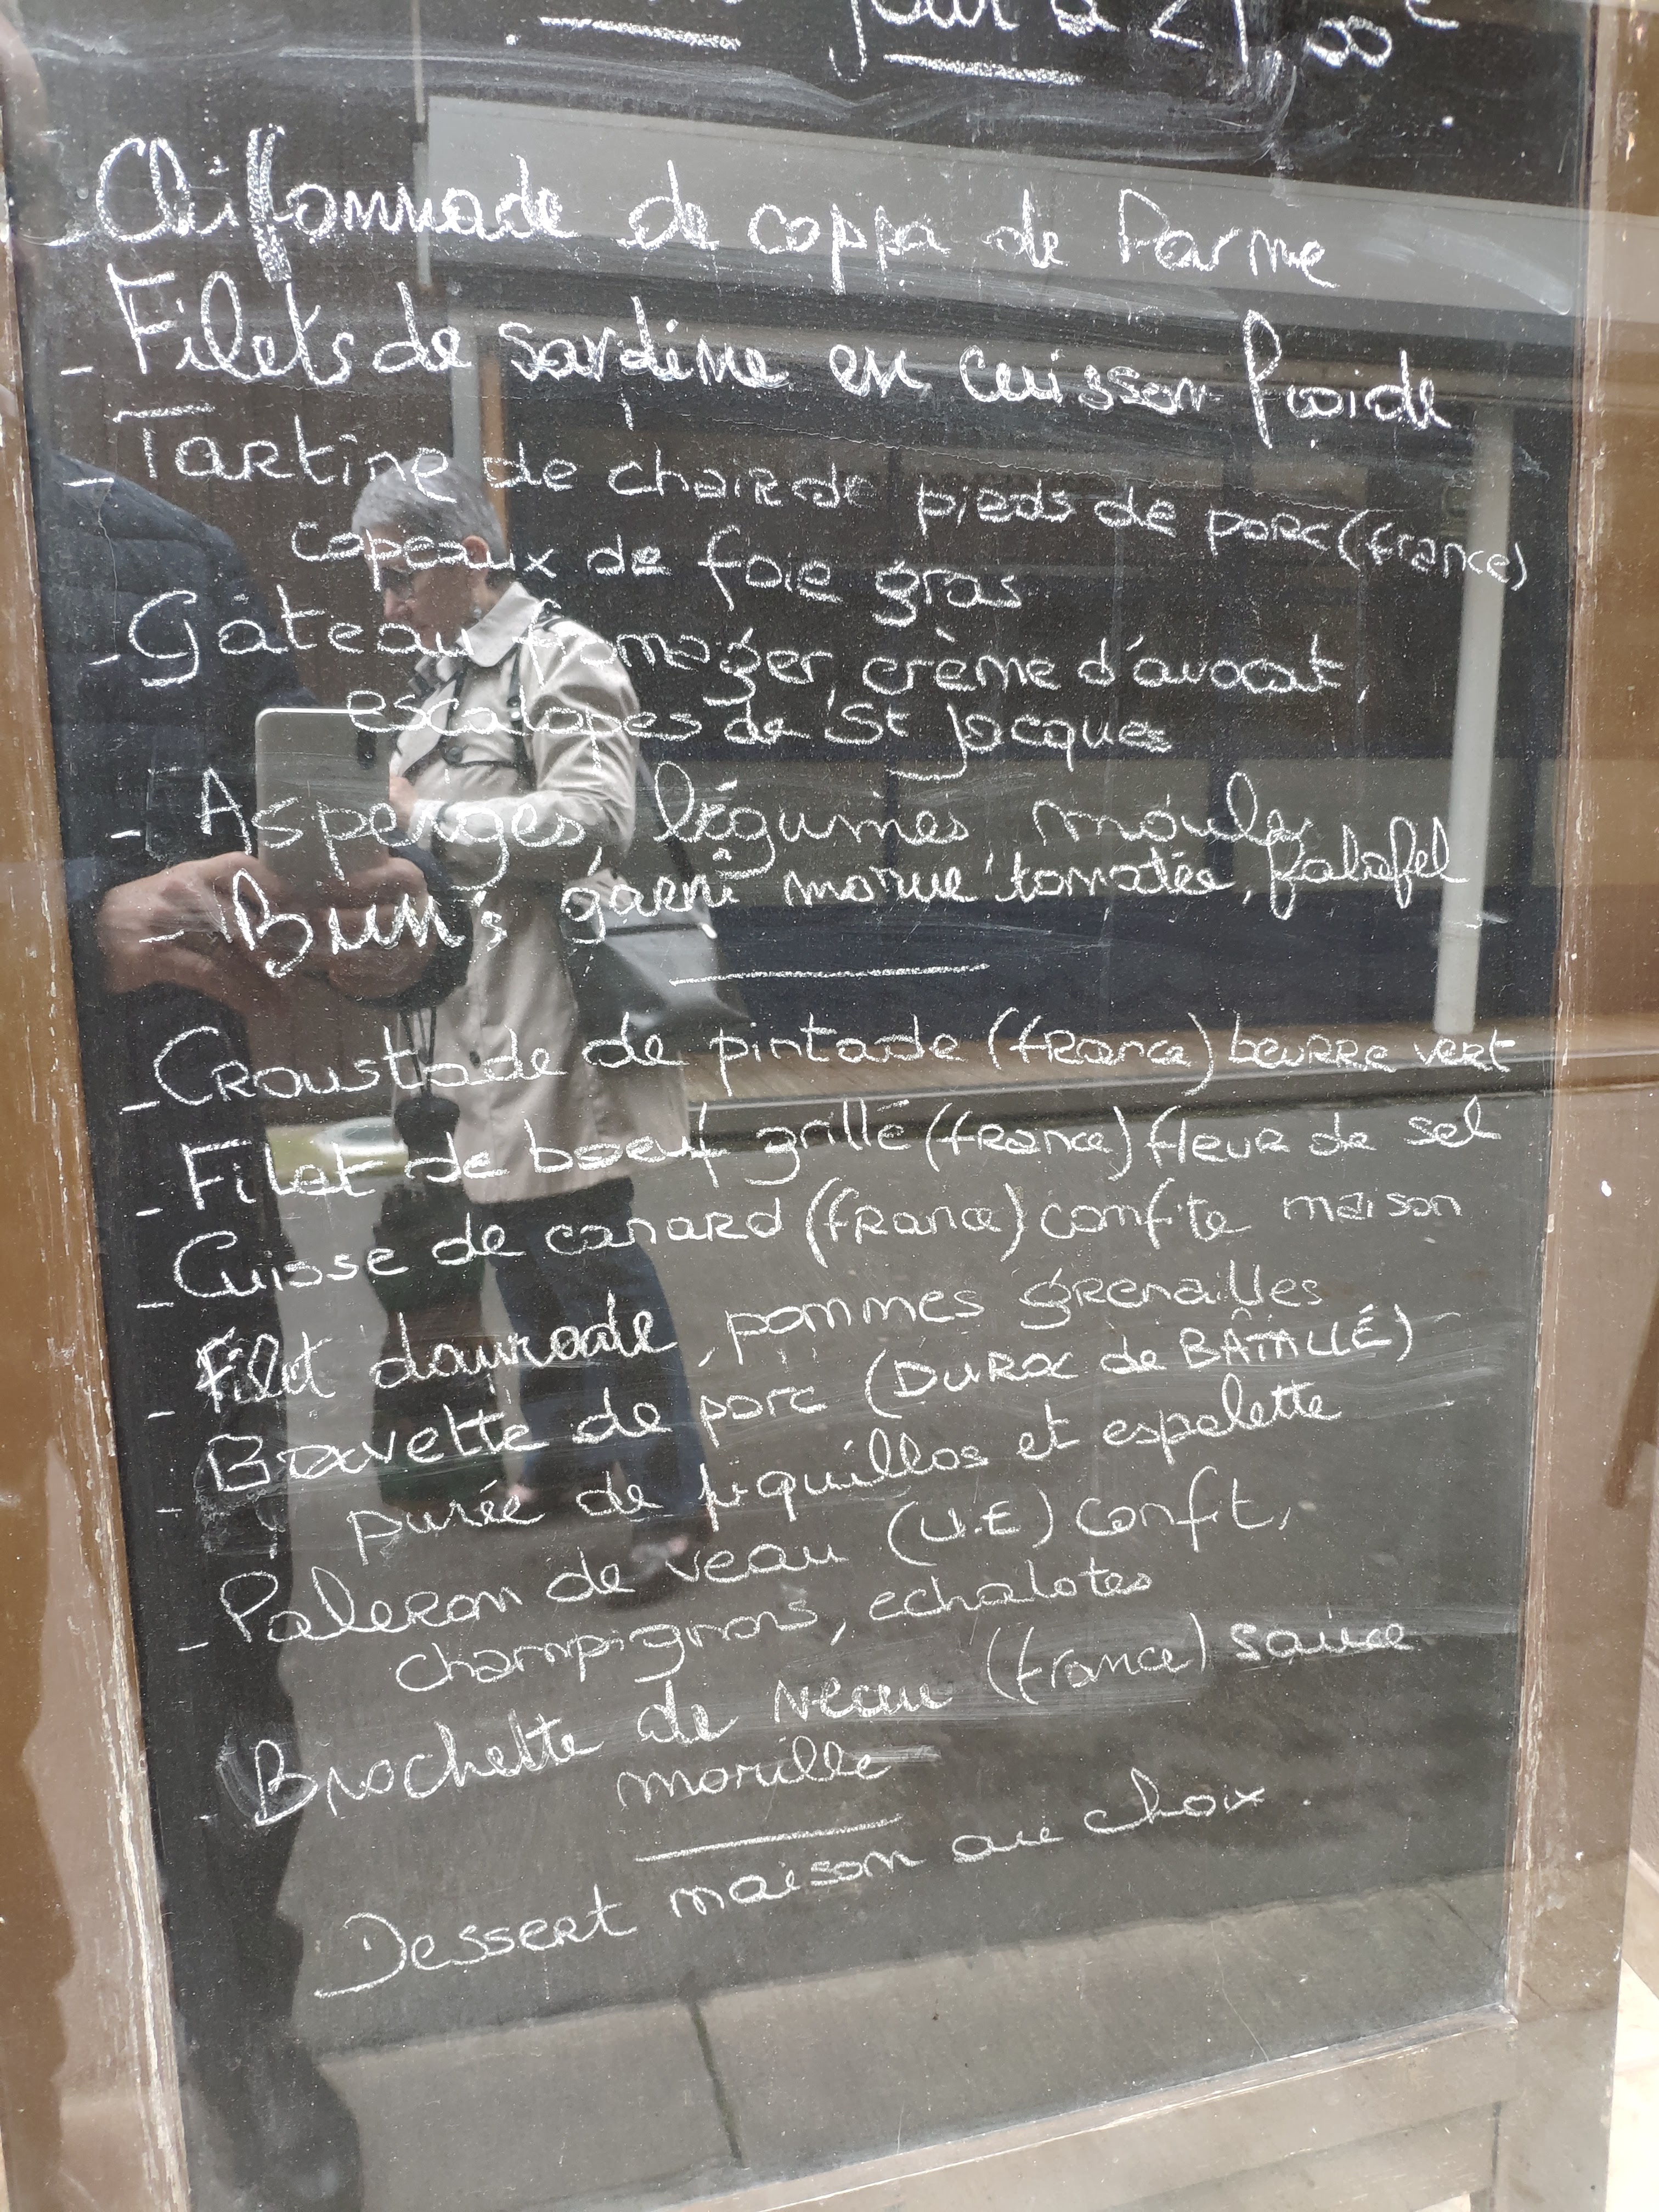 jour à 21,00€
- Chiffonnade de coppa de Parme
- Filets de sardine en cuisson froide
- Tartine de chair de pieds de porc (france)
copeaux de foie gras
- Gâteau fromager, crème d'avocat,
escalopes de St Jacques
- Asperges, légumes, moules
- Bun's garni morue tomatée, falafel
- Croustade de pintade (france) beurre vert
- Filet de boeuf grillé (france) fleur de sel
- Cuisse de canard (france) confite maison
- Filet daurade, pommes grenailles
- Bavette de porc (DUROC de BATALLÉ)
purée de piquillos et espelette
- Paleron de veau (U.E) confit,
champignons, echalotes
- Brochette de veau (france) sauce
morille
Dessert maison au choix.